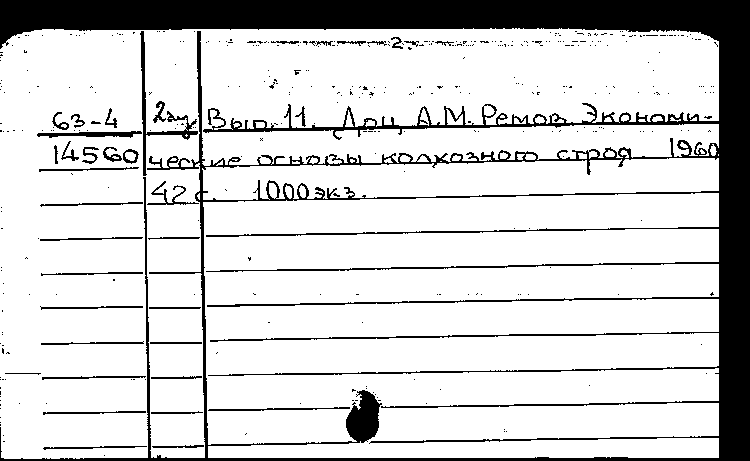 2.
63-4 2 экз Вып. 11. Доц. А.М. Ремов. Экономи-
14560 ческие основы колхозного строя. 1960
42 с. 1000 экз.